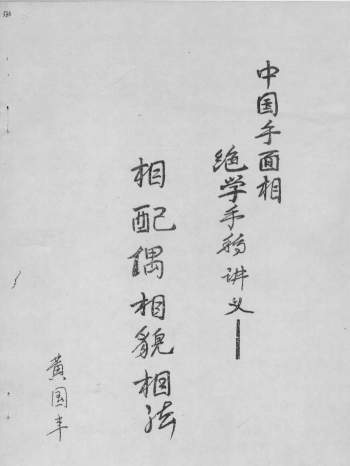 中国手面相
绝学手稿讲义——
相配偶相貌相法
黄国丰